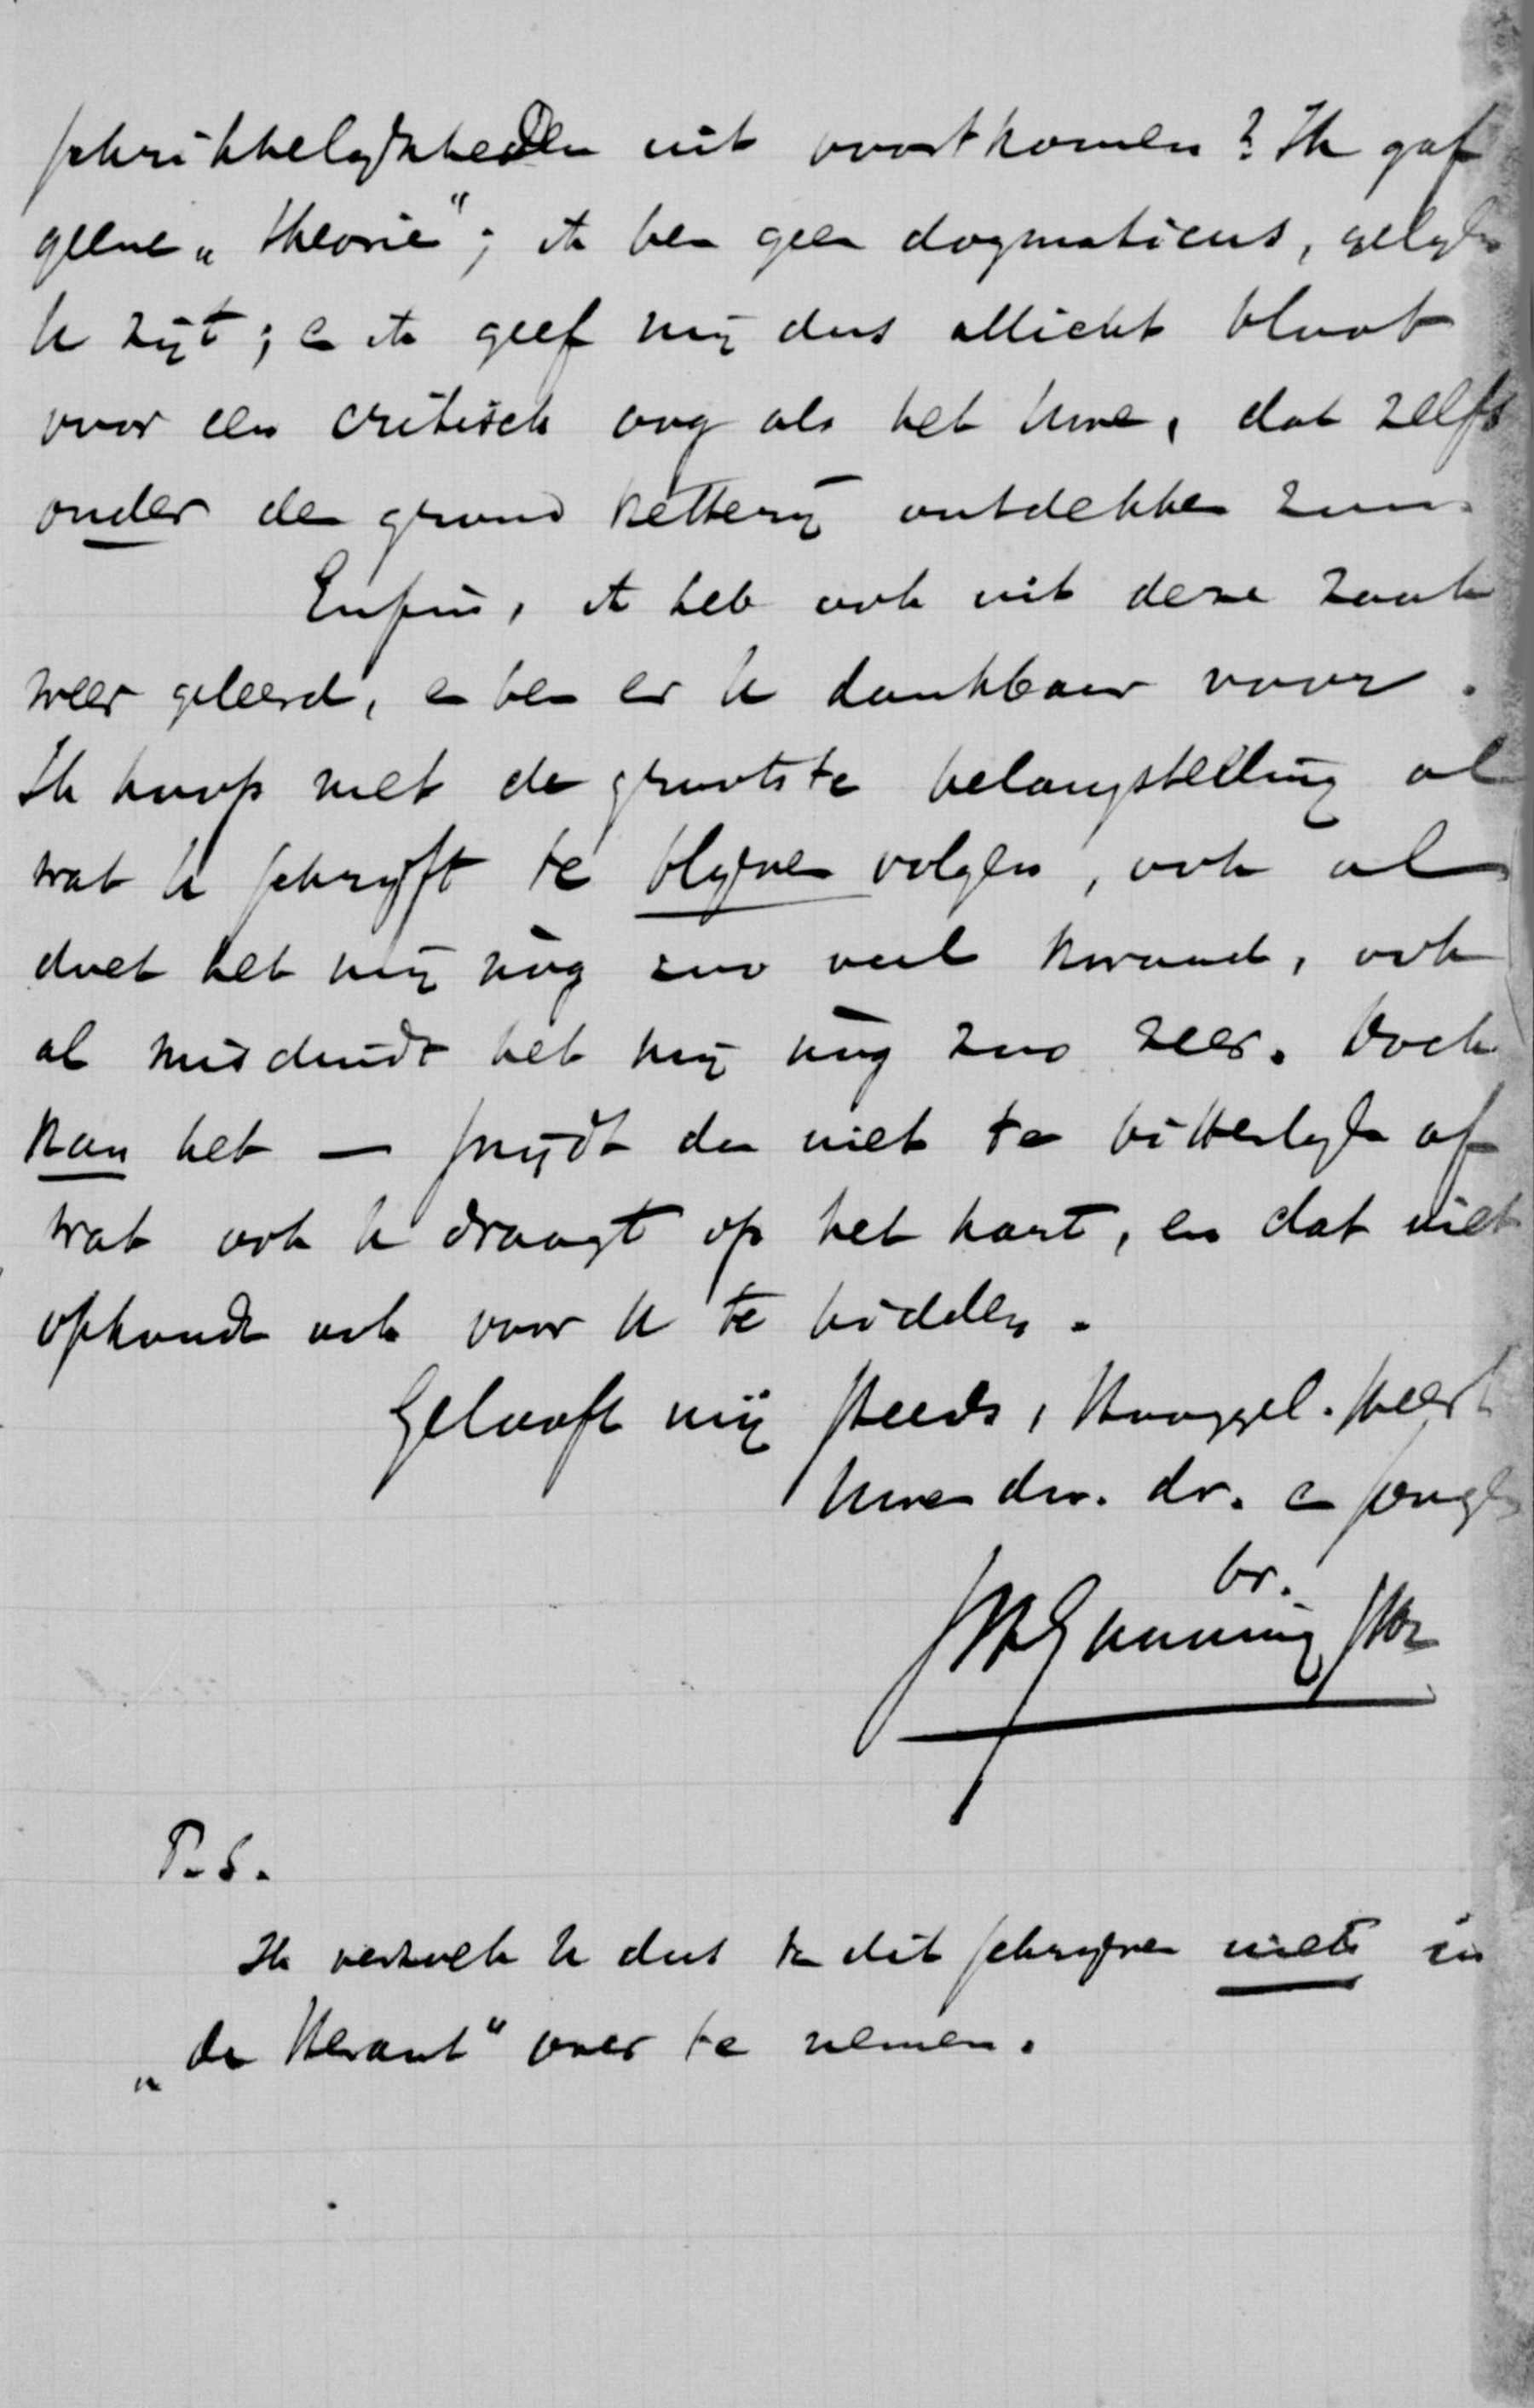 schrikkelijkheden uit voortkomen? Ik gaf
geene „theorie"; ik ben geen dogmaticus, gelijk
U zijt; en ik geef mij dus allicht bloot
voor een critisch oog als het Uwe, dat zelfs
onder den grond ketterij ontdekken zou.
Enfin, ik heb ook uit deze zaak
weer geleerd, en ben er U dankbaar voor.
Ik hoop met de grootste belangstelling al
wat U schrijft te blijven volgen, ook al
doet het mij nóg zoo veel kwaad, ook
al misduidt het mij nóg zoo zeer. Doch
kan het — snijdt dan niet te bitterlijk af
wat ook U draagt op het hart, en dat niet
ophoudt ook voor U te bidden.
Gelooft mij steeds, Hooggel. Heer
Uwen dw. dr. en jongen
br.
JHGunning JHz
P.S.
Ik verzoek U dus dit schrijven niet in
„de Heraut" over te nemen.